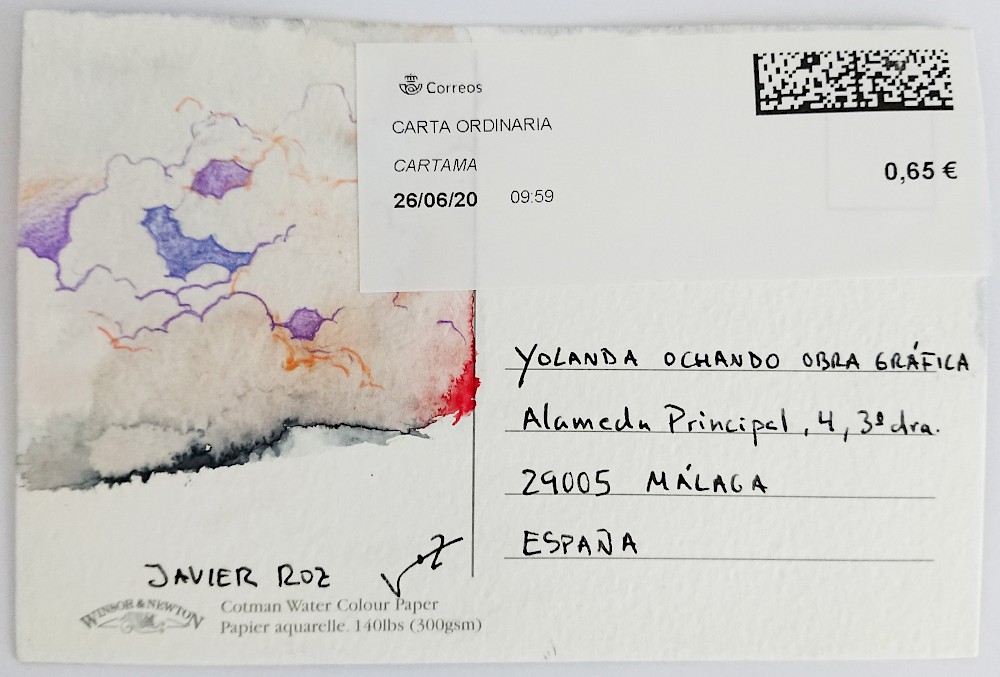 Correos
CARTA ORDINARIA
CARTAMA
26/06/20 09:59
0,65 €
YOLANDA OCHANDO OBRA GRÁFICA
Alameda Principal, 4, 3º dra.
29005 MÁLAGA
ESPAÑA
JAVIER ROZ
WINSOR & NEWTON
Cotman Water Colour Paper
Papier aquarelle. 140lbs (300gsm)